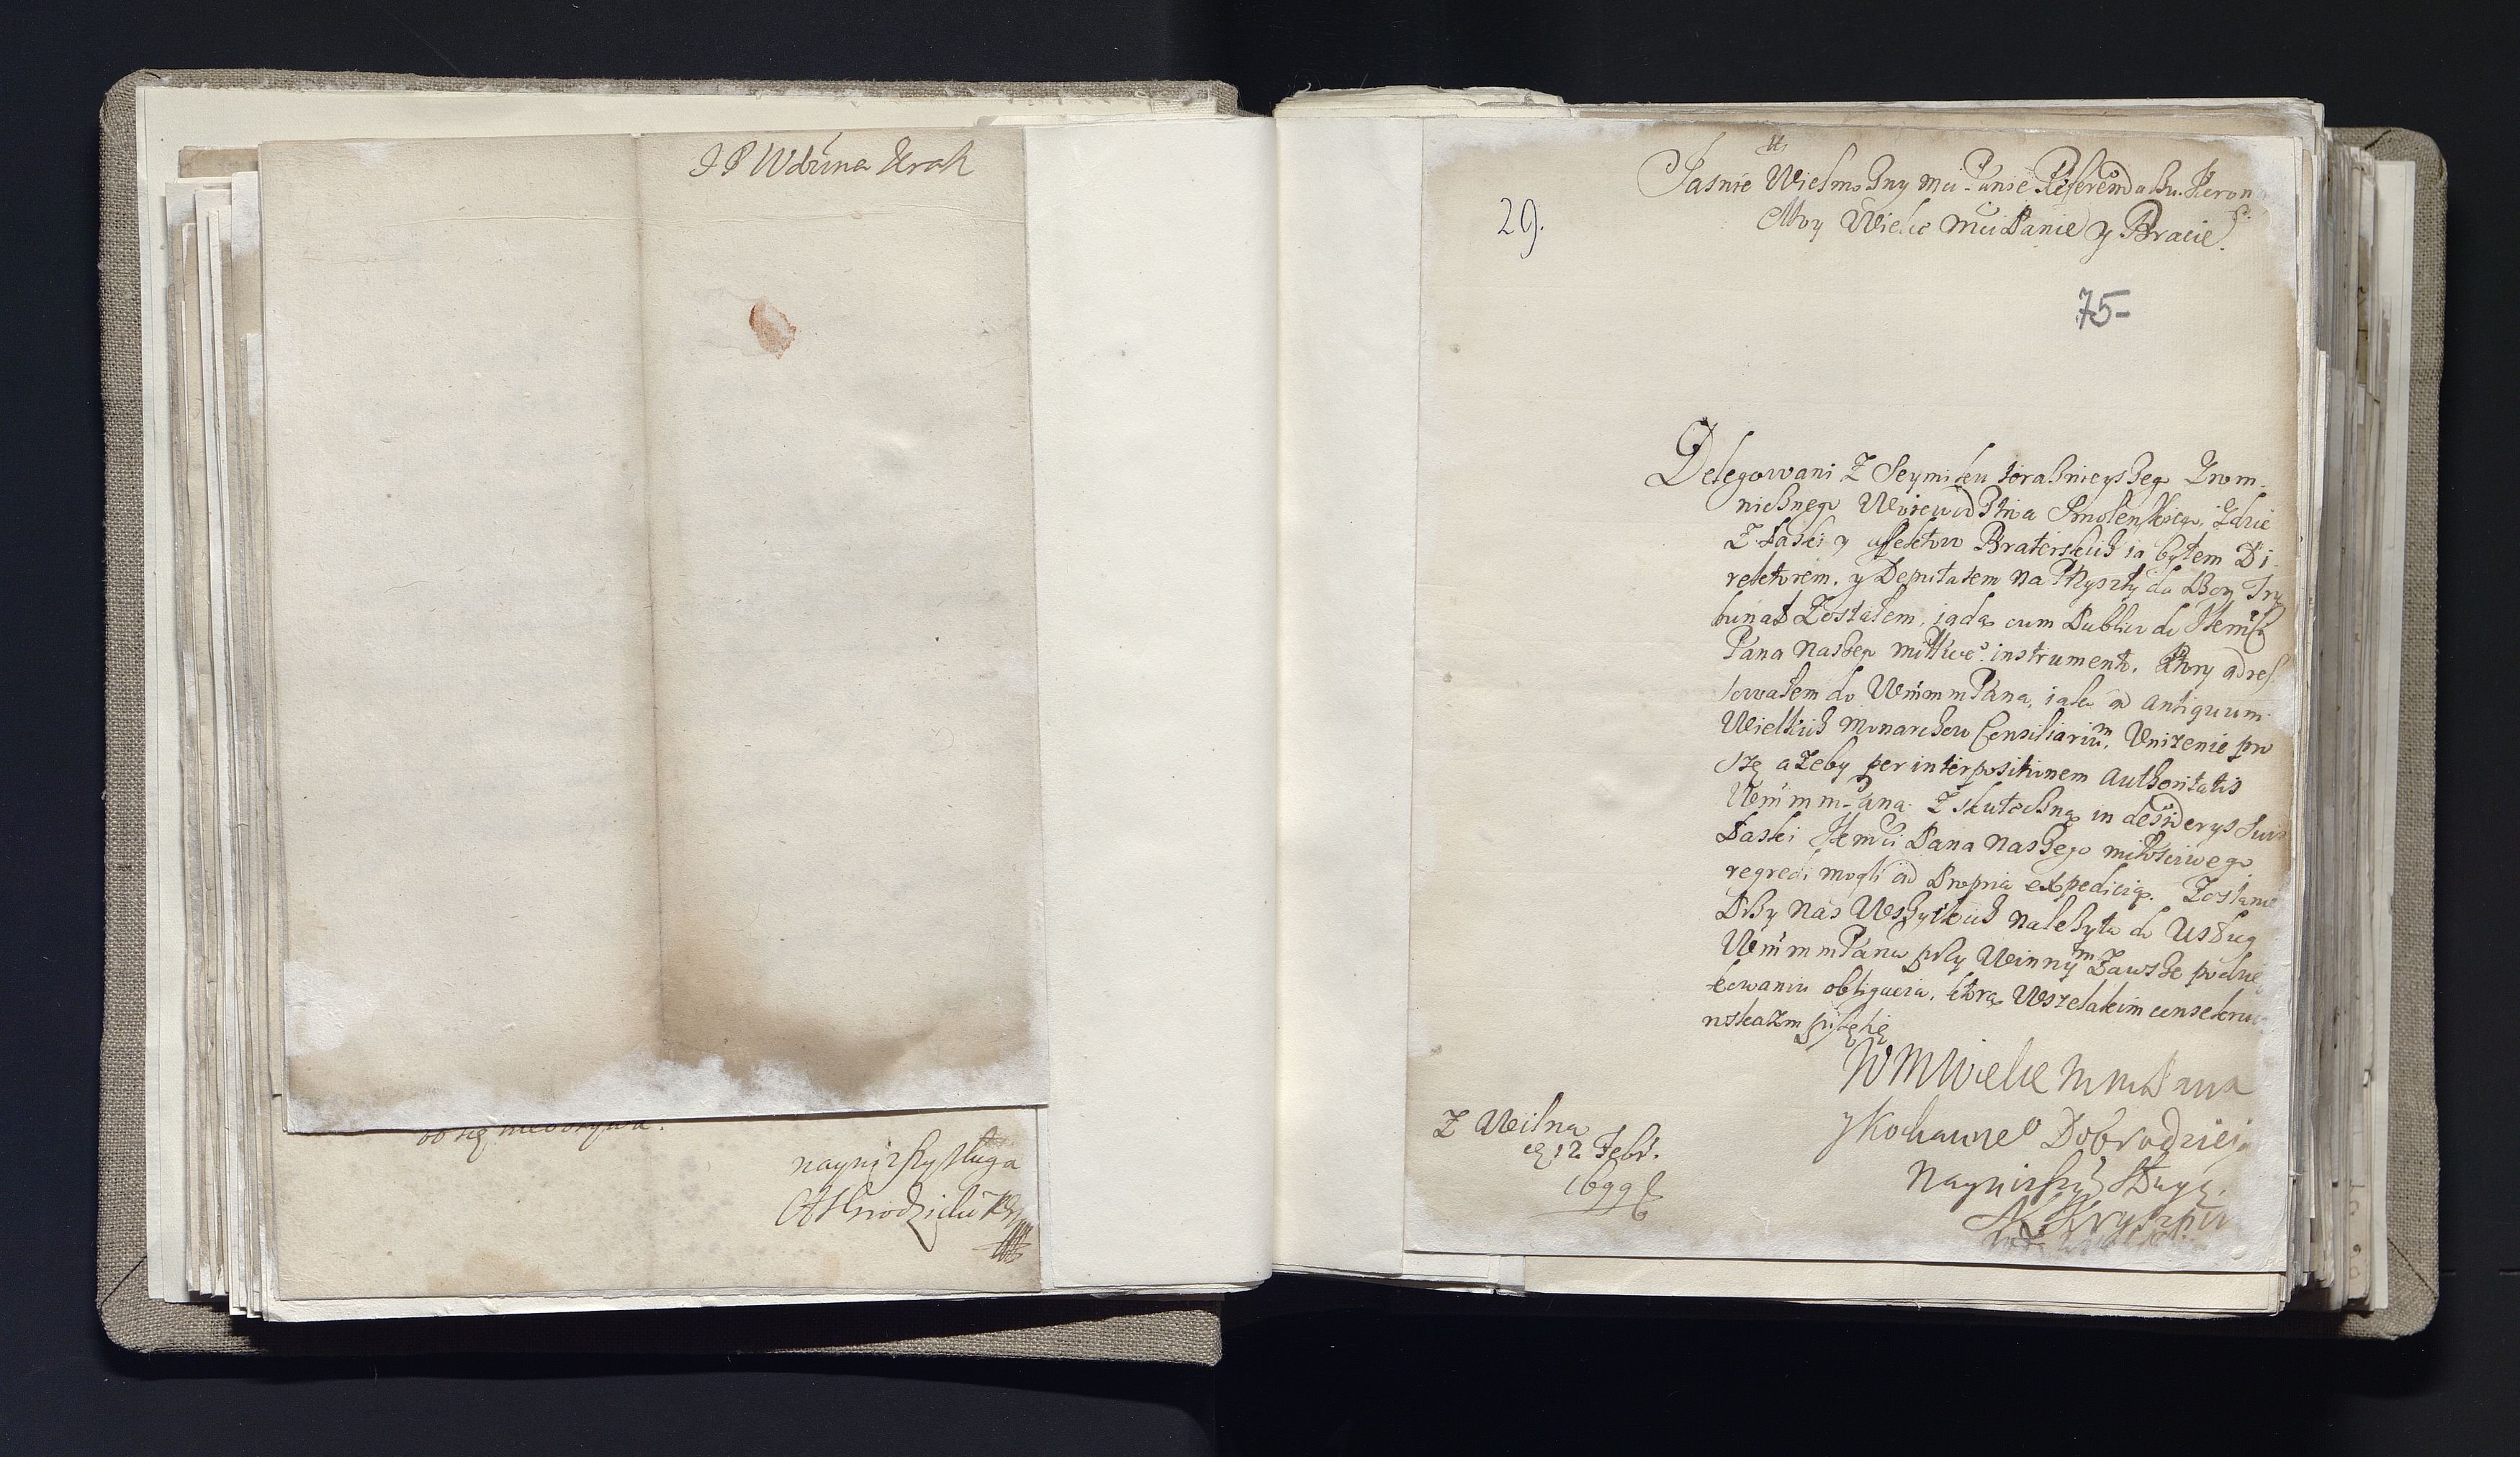 J P Wdżina Krak
nayniższy sługa
29.
Jasnie Wielmożny mci Panie Referendażu Koron
Moy Wielce Mci Panie y Bracie.
75-
Delegowani z Seymiku teraznieyszego Grom-
nicznego Woiewodztwa Smolenskiego, gdzie
z Łaski y affektow Braterskich ia byłem Di-
rektorem, y Deputatem na Przyszły da Bog Try
bunał Zostałem, iadą cum Publico do JKemści
Pana naszego miłłwego instrumento, ktory adres-
sowałem do WmmmPana, iako ad antiquum
Wielkich Monarchow Consiliarium, Unizenie pro
szę azeby per interpositionem Authoritatis
Wmmm Pana z skuteczną in desiderys suis
Łaski JKemści Pana naszego miłosciwego
regredi mogli ad Propria expedicią. Zostanie
Przy nas Wszytkich należyta do Usług
WmmmPana przy Winnym Zawsze podzię
kowaniu obligacya, ktorą Wszelakim
WM Wielce Mm Pana
y Kochanego Dobrodzieja
Nayniższy Sługa
K Kryszpin
Z Wilna
12 Febr.
1699